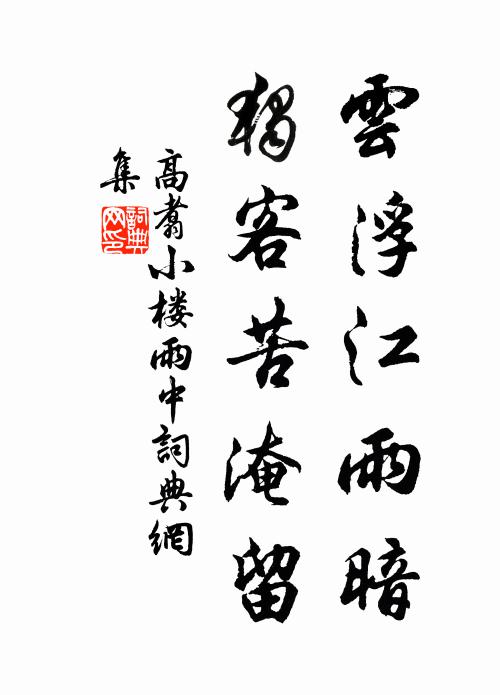 雲浮江雨暗
獨客苦淹留
高翥小楼雨中詞典網
集
詞典
网印